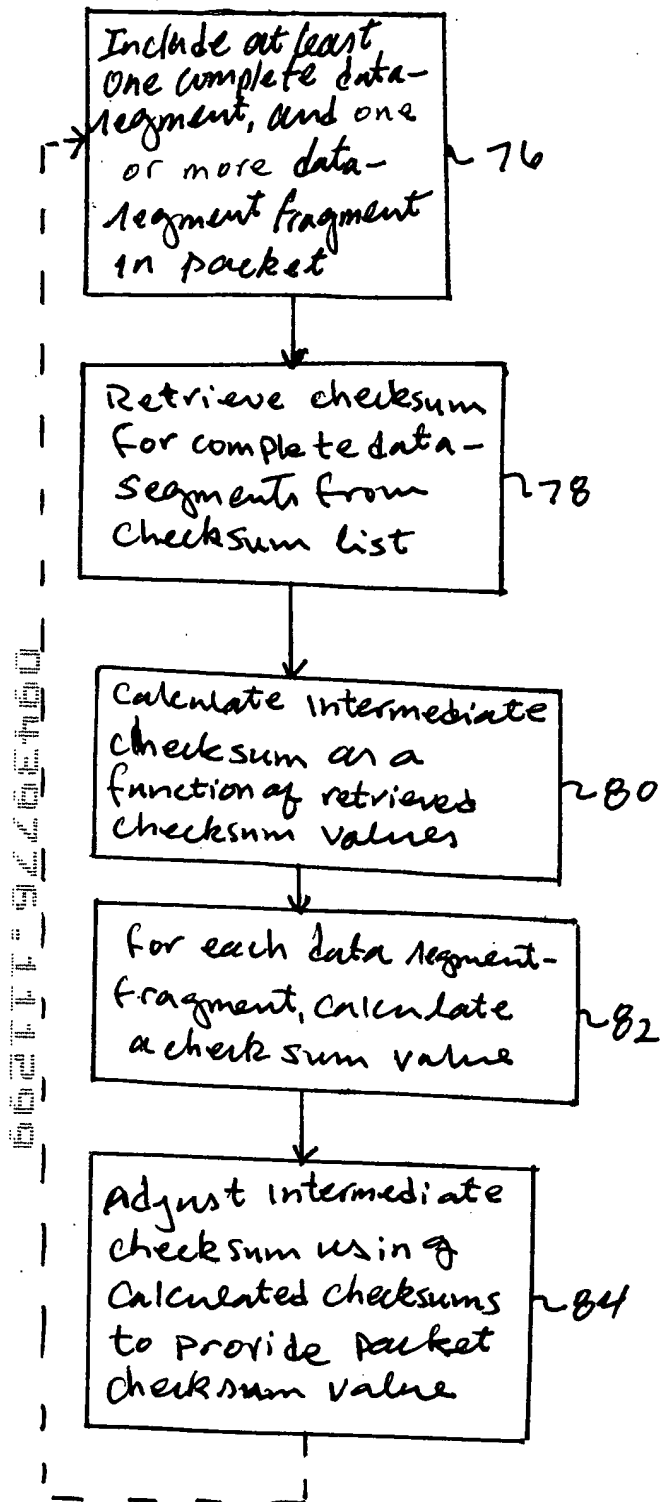 Include at least
one complete data-
segment, and one
or more data-
segment fragment
in packet
76
Retrieve checksum
for complete data-
segments from
checksum list
78
Calculate intermediate
checksum as a
function of retrieved
checksum values
80
for each data segment-
fragment, calculate
a check sum value
82
Adjust intermediate
checksum using
calculated checksums
to provide packet
checksum value
84